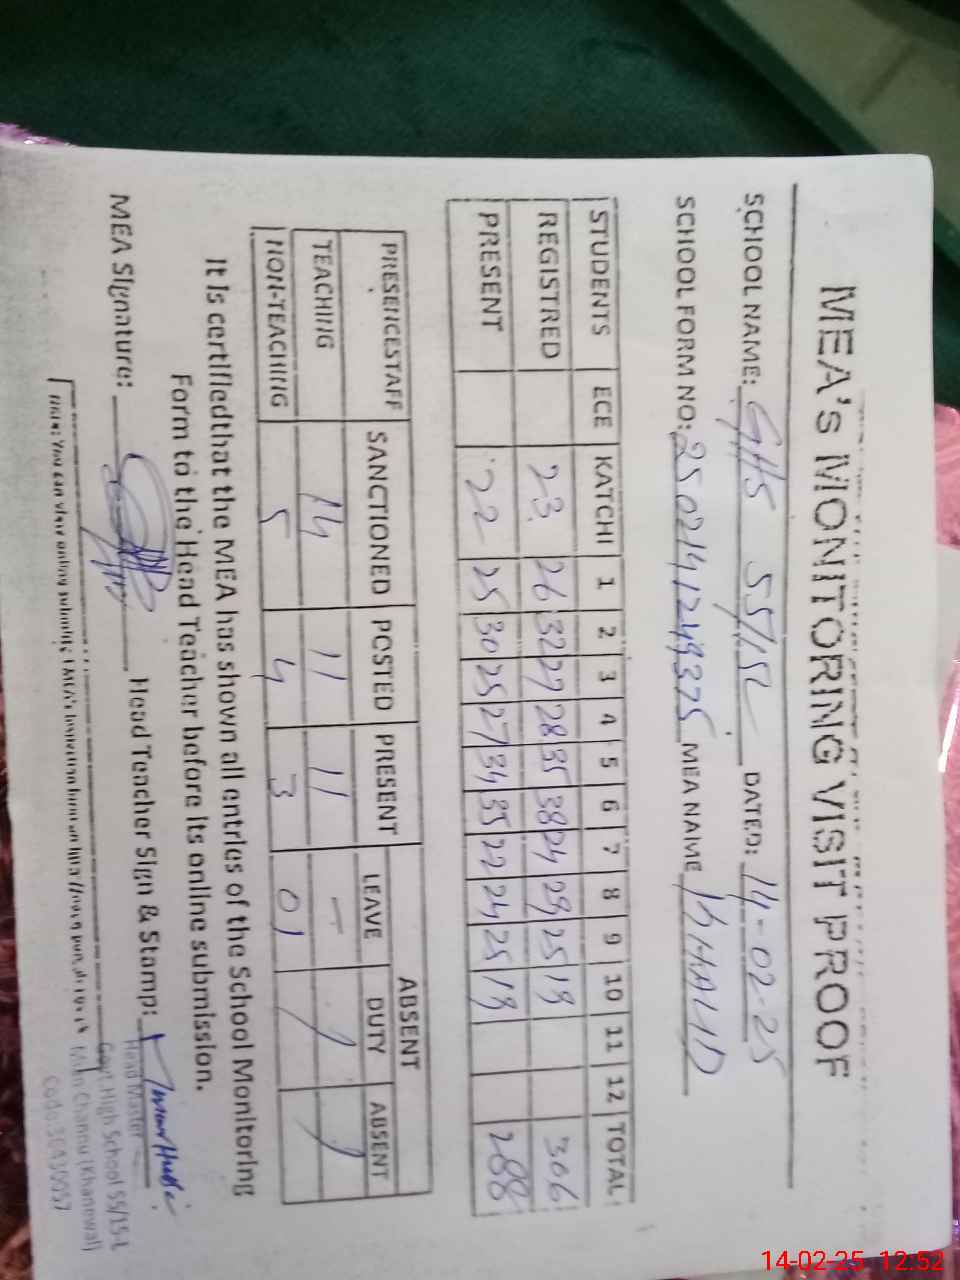 MEA's MONITORING VISIT PROOF
SCHOOL NAME: GHS 55/15L DATED: 14-02-25
SCHOOL FORM NO: 2502141249375 MEA NAME KHALID
STUDENTS ECE KATCHI 1 2 3 4 5 6 7 8 9 10 11 12 TOTAL
REGISTRED 23 26 32 27 28 35 38 24 29 25 19 306
PRESENT 22 25 30 25 27 34 35 22 24 25 19 288
PRESENCESTAFF SANCTIONED POSTED PRESENT ABSENT
LEAVE DUTY ABSENT
TEACHING 14 11 11 - / /
NON-TEACHING 5 4 3 01
It is certifiedthat the MEA has shown all entries of the School Monitoring
Form to the Head Teacher before its online submission.
MEA Signature: Head Teacher Sign & Stamp:
Head Master
Govt. High School 55/15-L
Mian Channu (Khanewal)
Note: You can view online
14-02-25 12:52